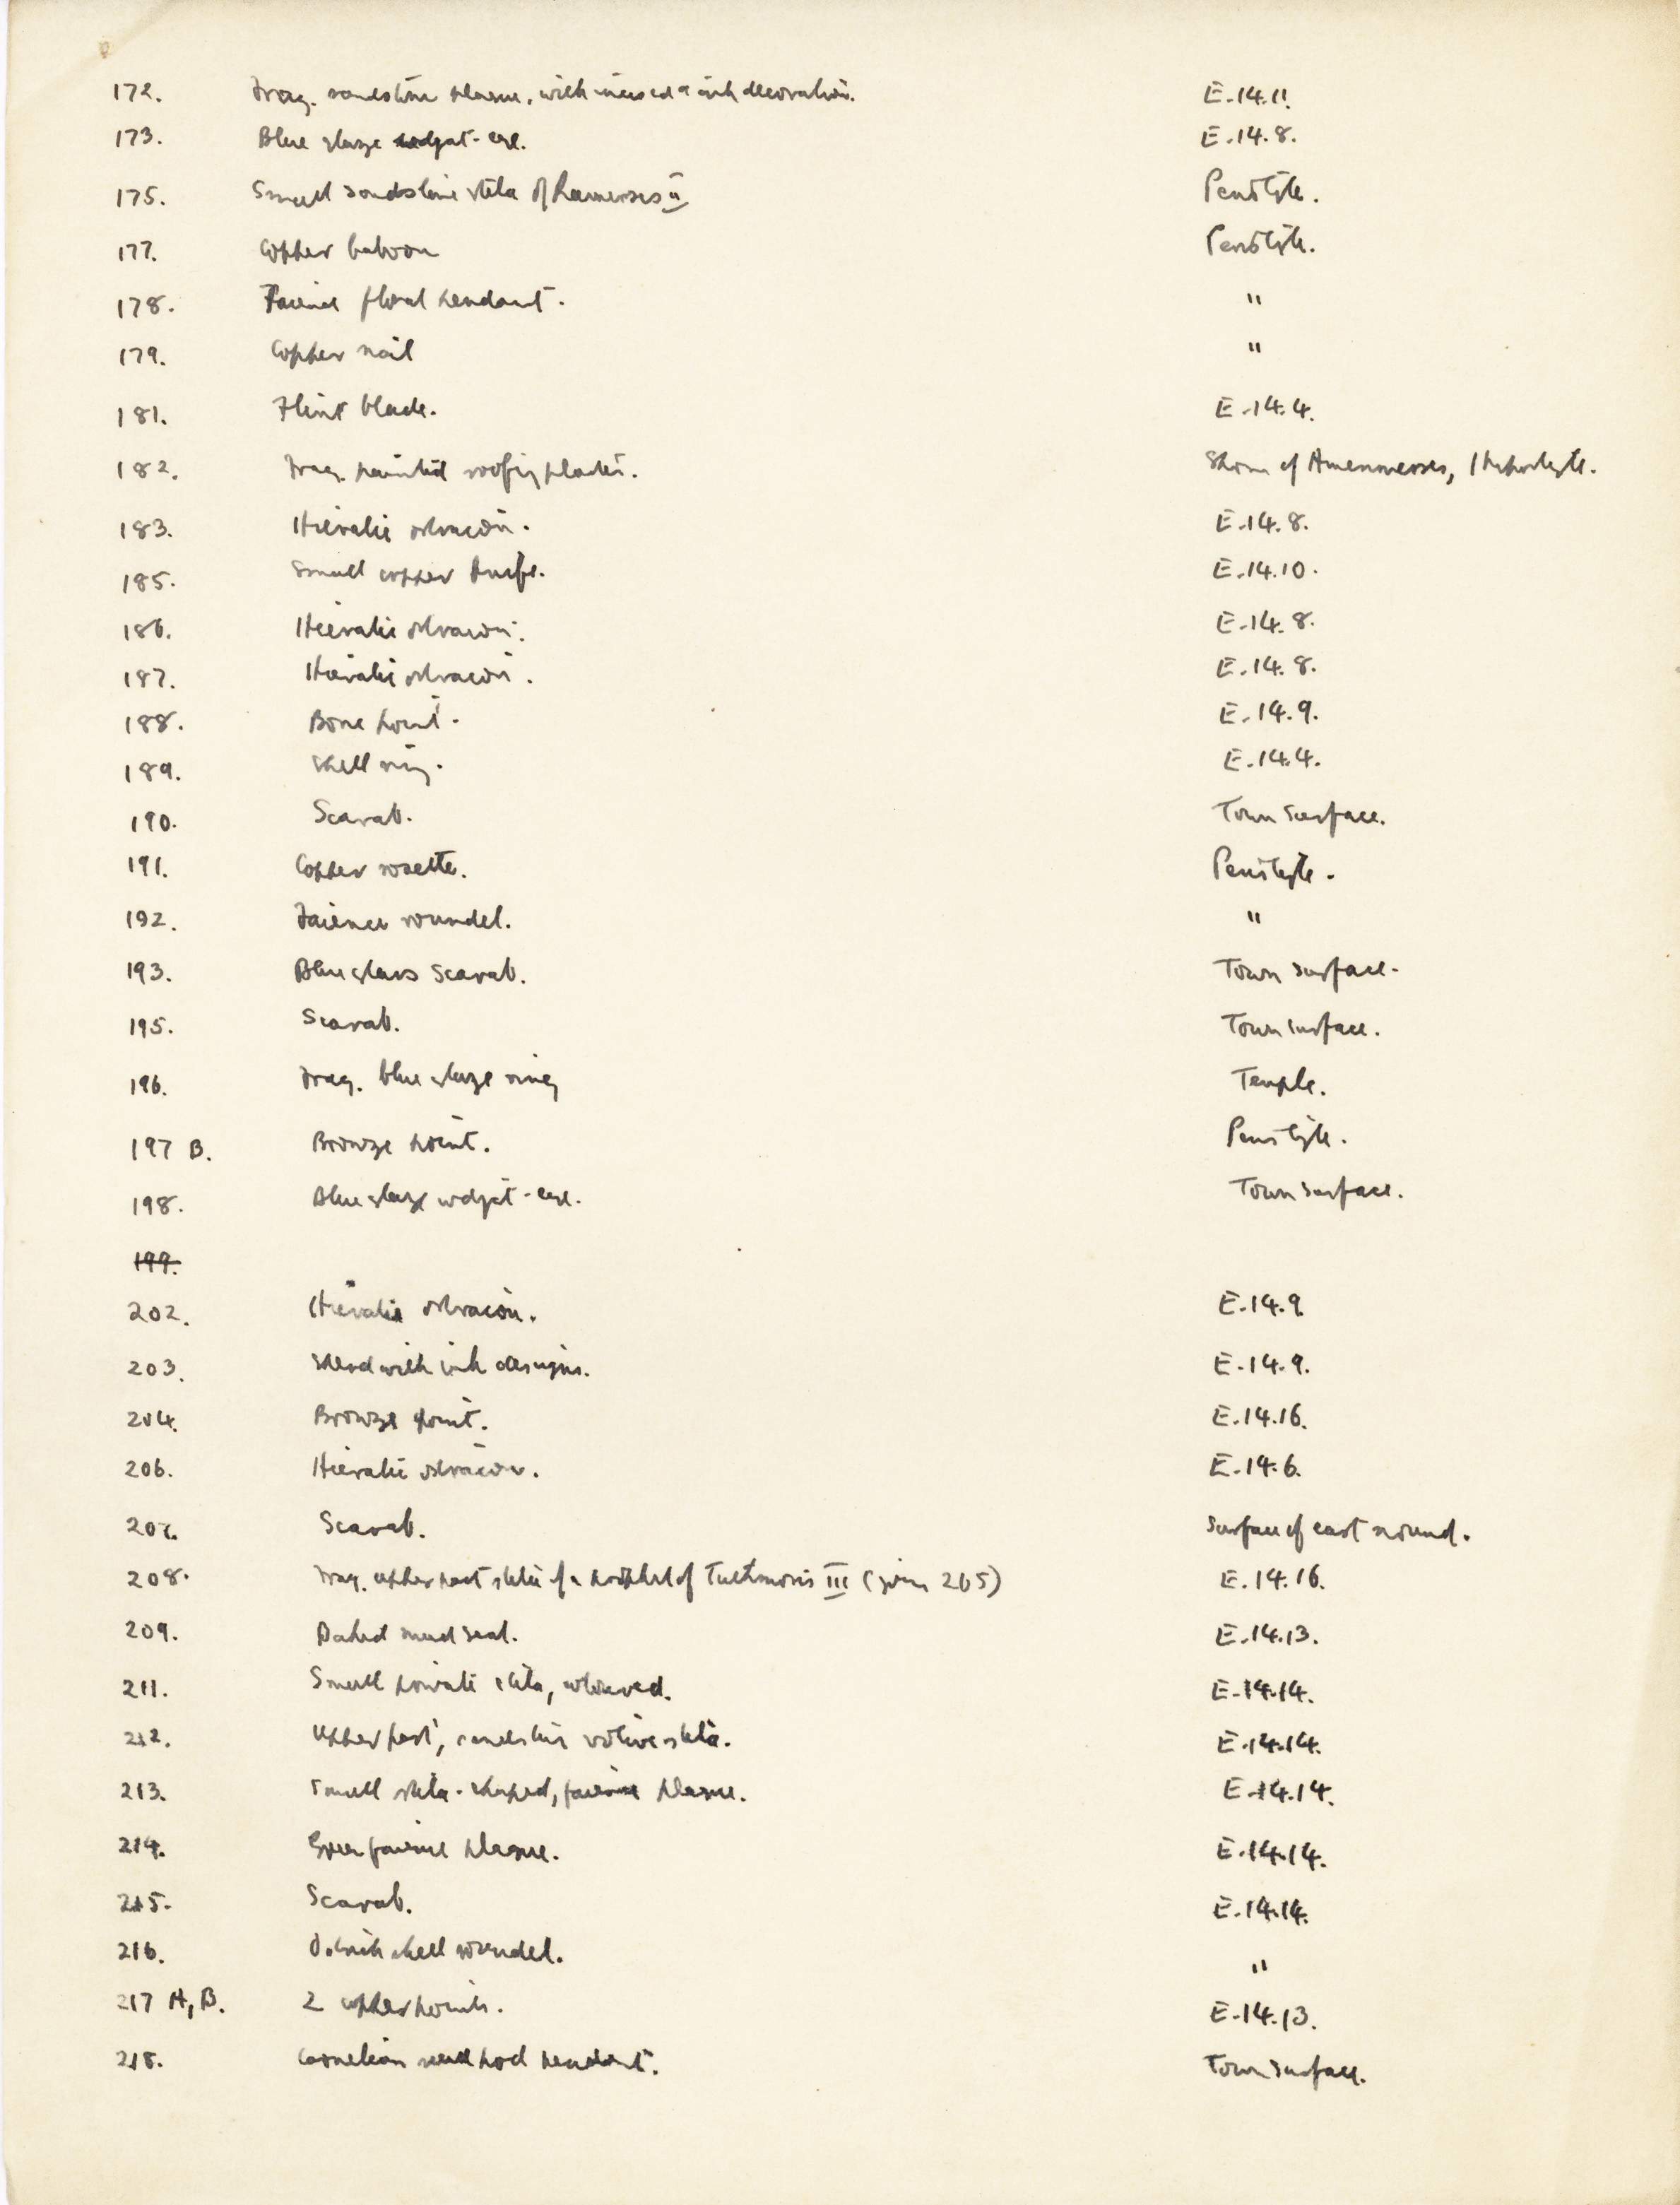 172. Frag. sandstone plaque, with incised & ink decoration. E.14.11.
173. Blue glaze wdjat-eye. E.14.8.
175. Small sandstone stela of Ramesses II Peristyle.
177. Copper baboon Peristyle.
178. Faience floral pendant. "
179. Copper nail "
181. Flint blade. E.14.4.
182. Frag. painted roofing plaster. Shrine of Amenmesses, Hypostyle.
183. Hieratic ostracon. E.14.8.
185. Small copper knife. E.14.10.
186. Hieratic ostracon. E.14.8.
187. Hieratic ostracon. E.14.8.
188. Bone point. E.14.9.
189. Shell ring. E.14.4.
190. Scarab. Town Surface.
191. Copper rosette. Peristyle.
192. Faience roundel. "
193. Blue glass scarab. Town surface.
195. Scarab. Town surface.
196. Frag. blue glaze ring Temple.
197 B. Bronze point. Peristyle.
198. Blue glaze wdjat-eye. Town surface.
199.
202. Hieratic ostracon. E.14.9.
203. Sherd with ink designs. E.14.9.
204. Bronze point. E.14.16.
206. Hieratic ostracon. E.14.6.
207. Scarab. Surface of east mound.
208. Frag. upper part stela of a prophet of Tuthmosis III (join 205) E.14.16.
209. Baked mud seal. E.14.13.
211. Small private stela, coloured. E.14.14.
212. Upper part, sandstone votive stela. E.14.14.
213. Small stela-shaped, faience plaque. E.14.14.
214. Green faience plaque. E.14.14.
215. Scarab. E.14.14.
216. Ostrich shell roundel. "
217 A, B. 2 copper points. E.14.13.
218. Carnelian seed pod pendant. Town surface.